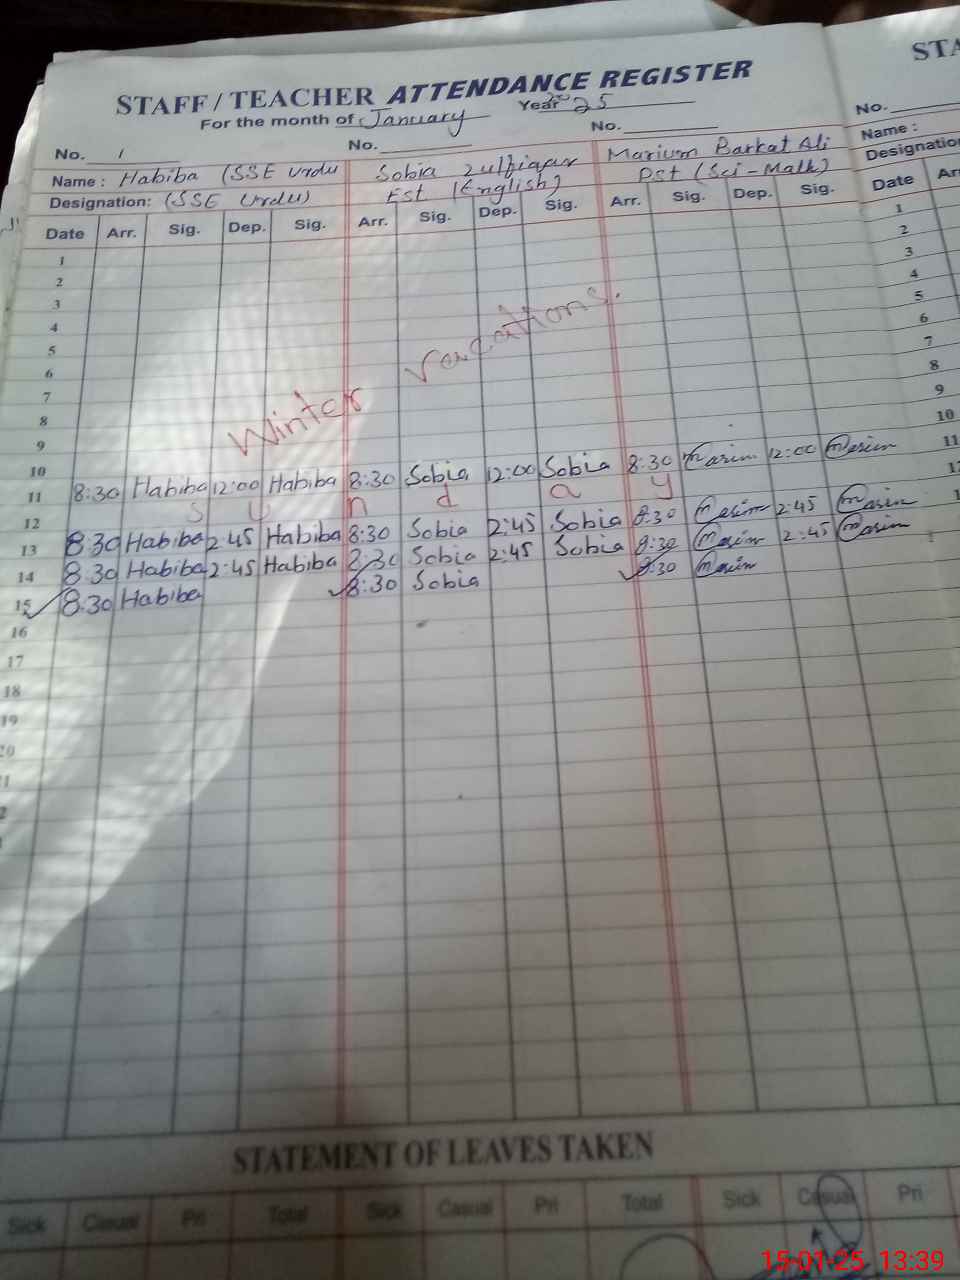 STA
STAFF / TEACHER ATTENDANCE REGISTER
For the month of January Year 2025
No. 1 No. No. No.
Name : Habiba (SSE Urdu Sobia Zulfiqar Marium Barkat Ali Name :
Designation: (SSE Urdu) Est (English) Pst (Sci-Math) Designation
Date Arr. Sig. Dep. Sig. Arr. Sig. Dep. Sig. Arr. Sig. Dep. Sig. Date Arr
1 1
2 2
3 3
4 4
5 5
6 6
7 7
8 8
9 9
10 10
Winter Vacations.
11 8:30 Habiba 12:00 Habiba 8:30 Sobia 12:00 Sobia 8:30 12:00 11
12 S u n d a y
13 8:30 Habiba 2:45 Habiba 8:30 Sobia 2:45 Sobia 8:30 2:45
14 8:30 Habiba 2:45 Habiba 8:30 Sobia 2:45 Sobia 8:30 2:45
15 8:30 Habiba 8:30 Sobia 8:30
16
17
18
19
20
STATEMENT OF LEAVES TAKEN
Sick Casual Pri Total Sick Casual Pri Total Sick Casual Pri
15-01-25 13:39